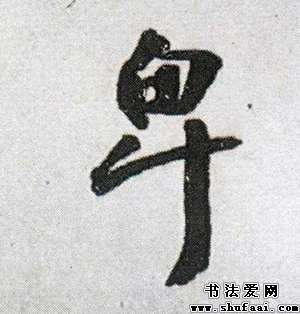 卑
书法爱网
www.shufaai.com